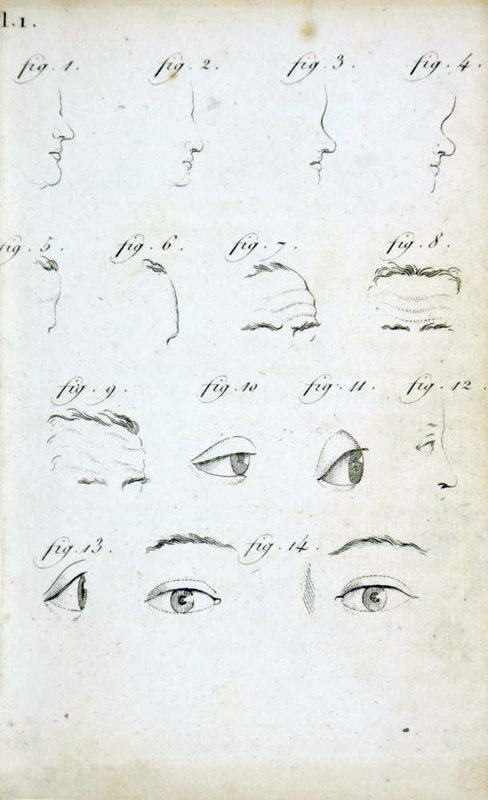 l.1.
fig. 1. fig. 2. fig. 3. fig. 4.
fig. 5. fig. 6. fig. 7. fig. 8.
fig. 9. fig. 10 fig. 11. fig. 12
fig. 13. fig. 14.